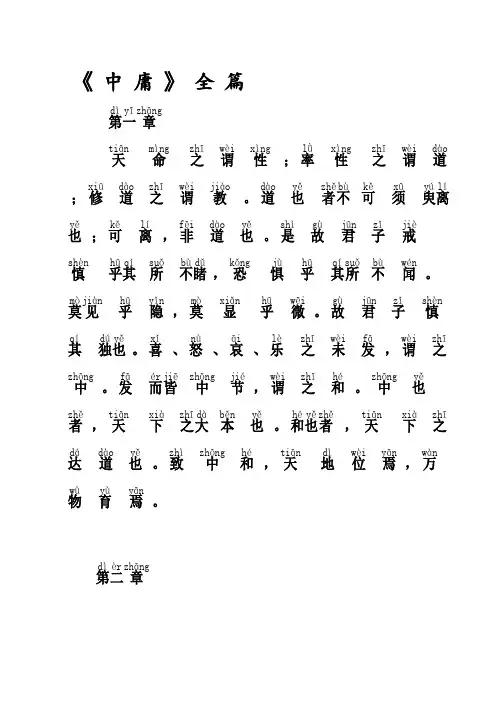 《中庸》全篇
dì yī zhāng
第一章
tiān mìng zhī wèi xìng lǜ xìng zhī wèi dào
天命之谓性；率性之谓道
xiū dào zhī wèi jiào dào yě zhě bù kě xū yú lí
；修道之谓教。道也者不可须臾离
yě kě lí fēi dào yě shì gù jūn zǐ jiè
也；可离，非道也。是故君子戒
shèn hū qí suǒ bù dǔ kǒng jù hū qí suǒ bù wén
慎乎其所不睹，恐惧乎其所不闻。
mò jiàn hū yǐn mò xiǎn hū wēi gù jūn zǐ shèn
莫见乎隐，莫显乎微。故君子慎
qí dú yě xǐ nù āi lè zhī wèi fā wèi zhī
其独也。喜、怒、哀、乐之未发，谓之
zhōng fā ér jiē zhōng jié wèi zhī hé zhōng yě
中。发而皆中节，谓之和。中也
zhě tiān xià zhī dà běn yě hé yě zhě tiān xià zhī
者，天下之大本也。和也者，天下之
dá dào yě zhì zhōng hé tiān dì wèi yān wàn
达道也。致中和，天地位焉，万
wù yù yān
物育焉。
dì èr zhāng
第二章